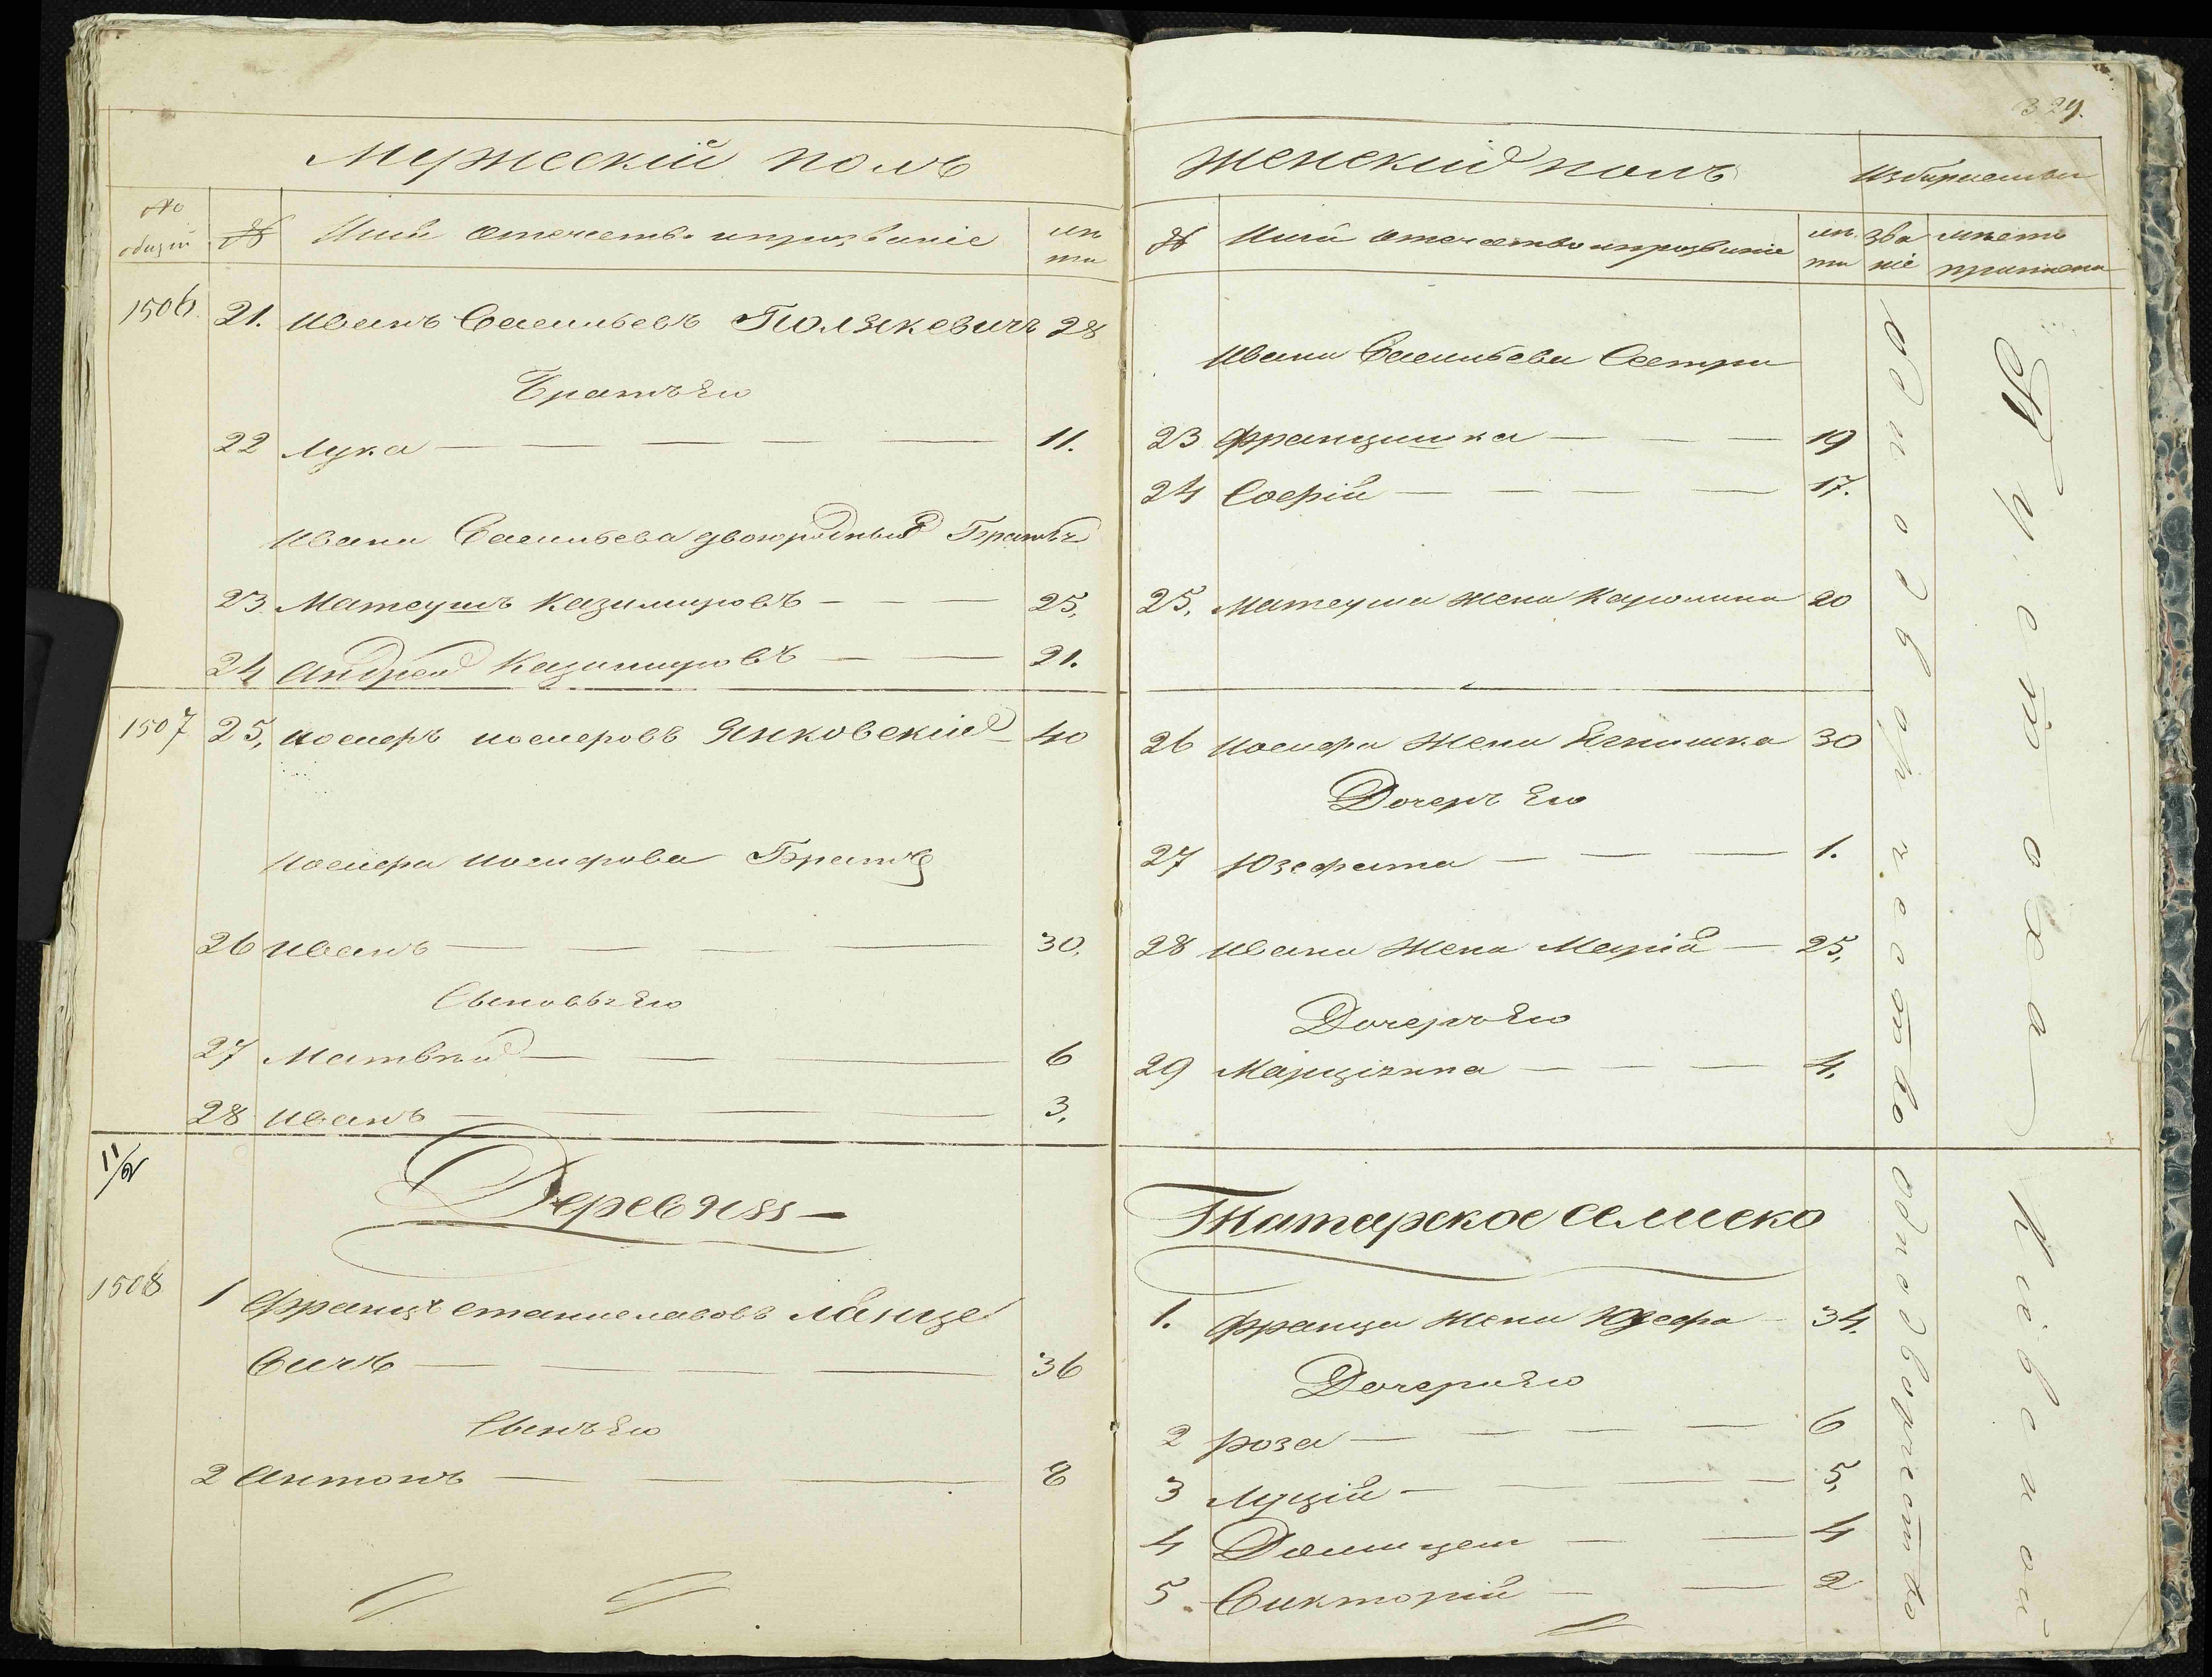 329.
Мужескій полъ
№ общій
№
Имя отечество и прозваніе
лѣта
1506. 21. Иванъ Васильевъ Полякевичъ 28
Братъ Его
22 Лука 11.
Ивана Васильева двоюродный Братья
23. Матеушъ Казимировъ 25,
24 Андрей Казимировъ 21.
1507 25, Иосифъ Иосифовъ Янковскій 40
Иосифа Иосифова Братъ
26 Иванъ 30,
Сыновья Его
27 Матвѣй 6
28 Иванъ 3,
11/2
Деревня
1508 1 Францъ Станиславовъ
вичъ 36
Сынъ Его
2 Антонъ 8
Женскій полъ
№
Имя отечество и прозваніе
лѣта
званіе
мѣсто
Ивана Васильева Сестры
23 Францишка 19
24 Софія 17.
25, Матеуша жена Каролина 20
26 Иосифа Жена 30
Дочерь Его
27 Юзефата 1.
28 Ивана Жена Марія 25,
Дочерь Его
29 Марціянна 4.
Татарское селиско
1. Франца жена Юзефа 34.
Дочери Его
2 роза 6
3 Луція 5,
4 4
5. Викторія 2
Однодворчество
Пустоха
Однодворчество